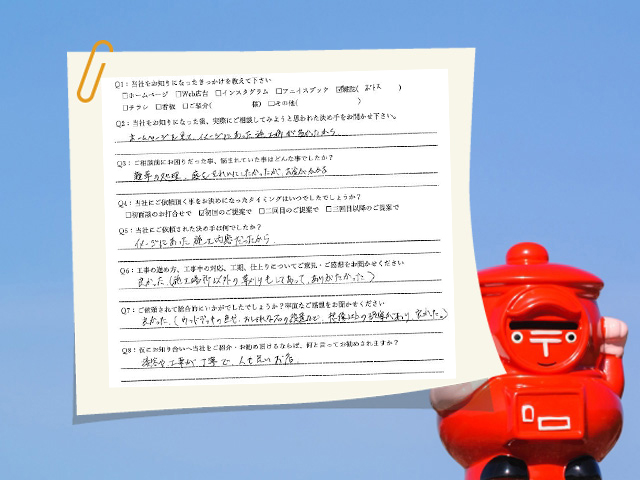 Q1：当社をお知りになったきっかけを教えて下さい
□ホームページ □Web広告 □インスタグラム □フェイスブック ☑雑誌( おトス )
□チラシ □看板 □ご紹介( 様) □その他( )
Q2：当社をお知りになった後、実際にご相談してみようと思われた決め手をお聞かせ下さい。
ホームページを見て、イメージにあった施工例が多かったから
Q3：ご相談前にお困りだった事、悩まれていた事はどんな事でしたか？
雑草の処理、庭をきれいにしたかったが、お金がかかる
Q4：当社にご依頼頂く事をお決めになったタイミングはいつでしたでしょうか？
□初面談のお打合せで ☑初回のご提案で □二回目のご提案で □三回目以降のご提案で
Q5：当社にご依頼された決め手は何でしたか？
イメージにあった施工内容だったから
Q6：工事の進め方、工事中の対応、工期、仕上りについてご意見・ご感想をお聞かせください
良かった（施工場所以外の草かりもしてあって、ありがたかった）
Q7：ご依頼されて総合的にいかがでしたでしょうか？率直なご感想をお聞かせください
良かった。（ウッドデッキの色や、おしゃれな石の提案など、想像以上の
Q8：仮にお知り合いへ当社をご紹介・お勧め頂けるならば、何と言ってお勧めされますか？
接客や工事が丁寧で、人も良いお店